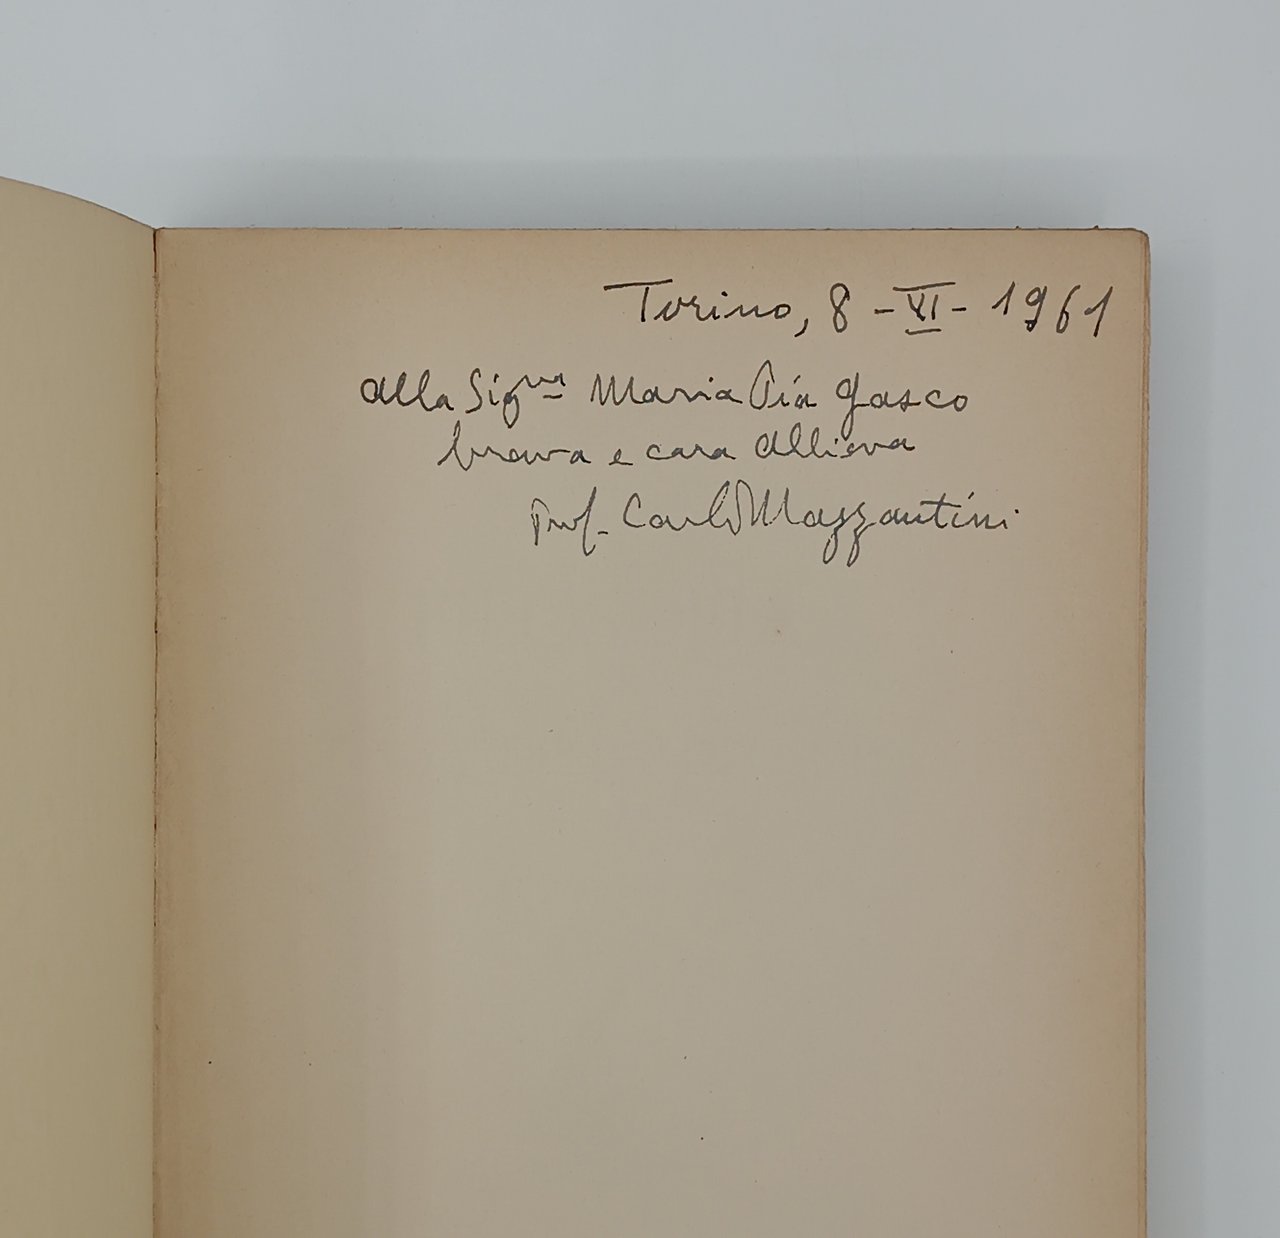 Torino, 8 - XI - 1961
alla Sig.na Maria Pia Gasco
brava e cara allieva
Prof. Carlo Mazzantini